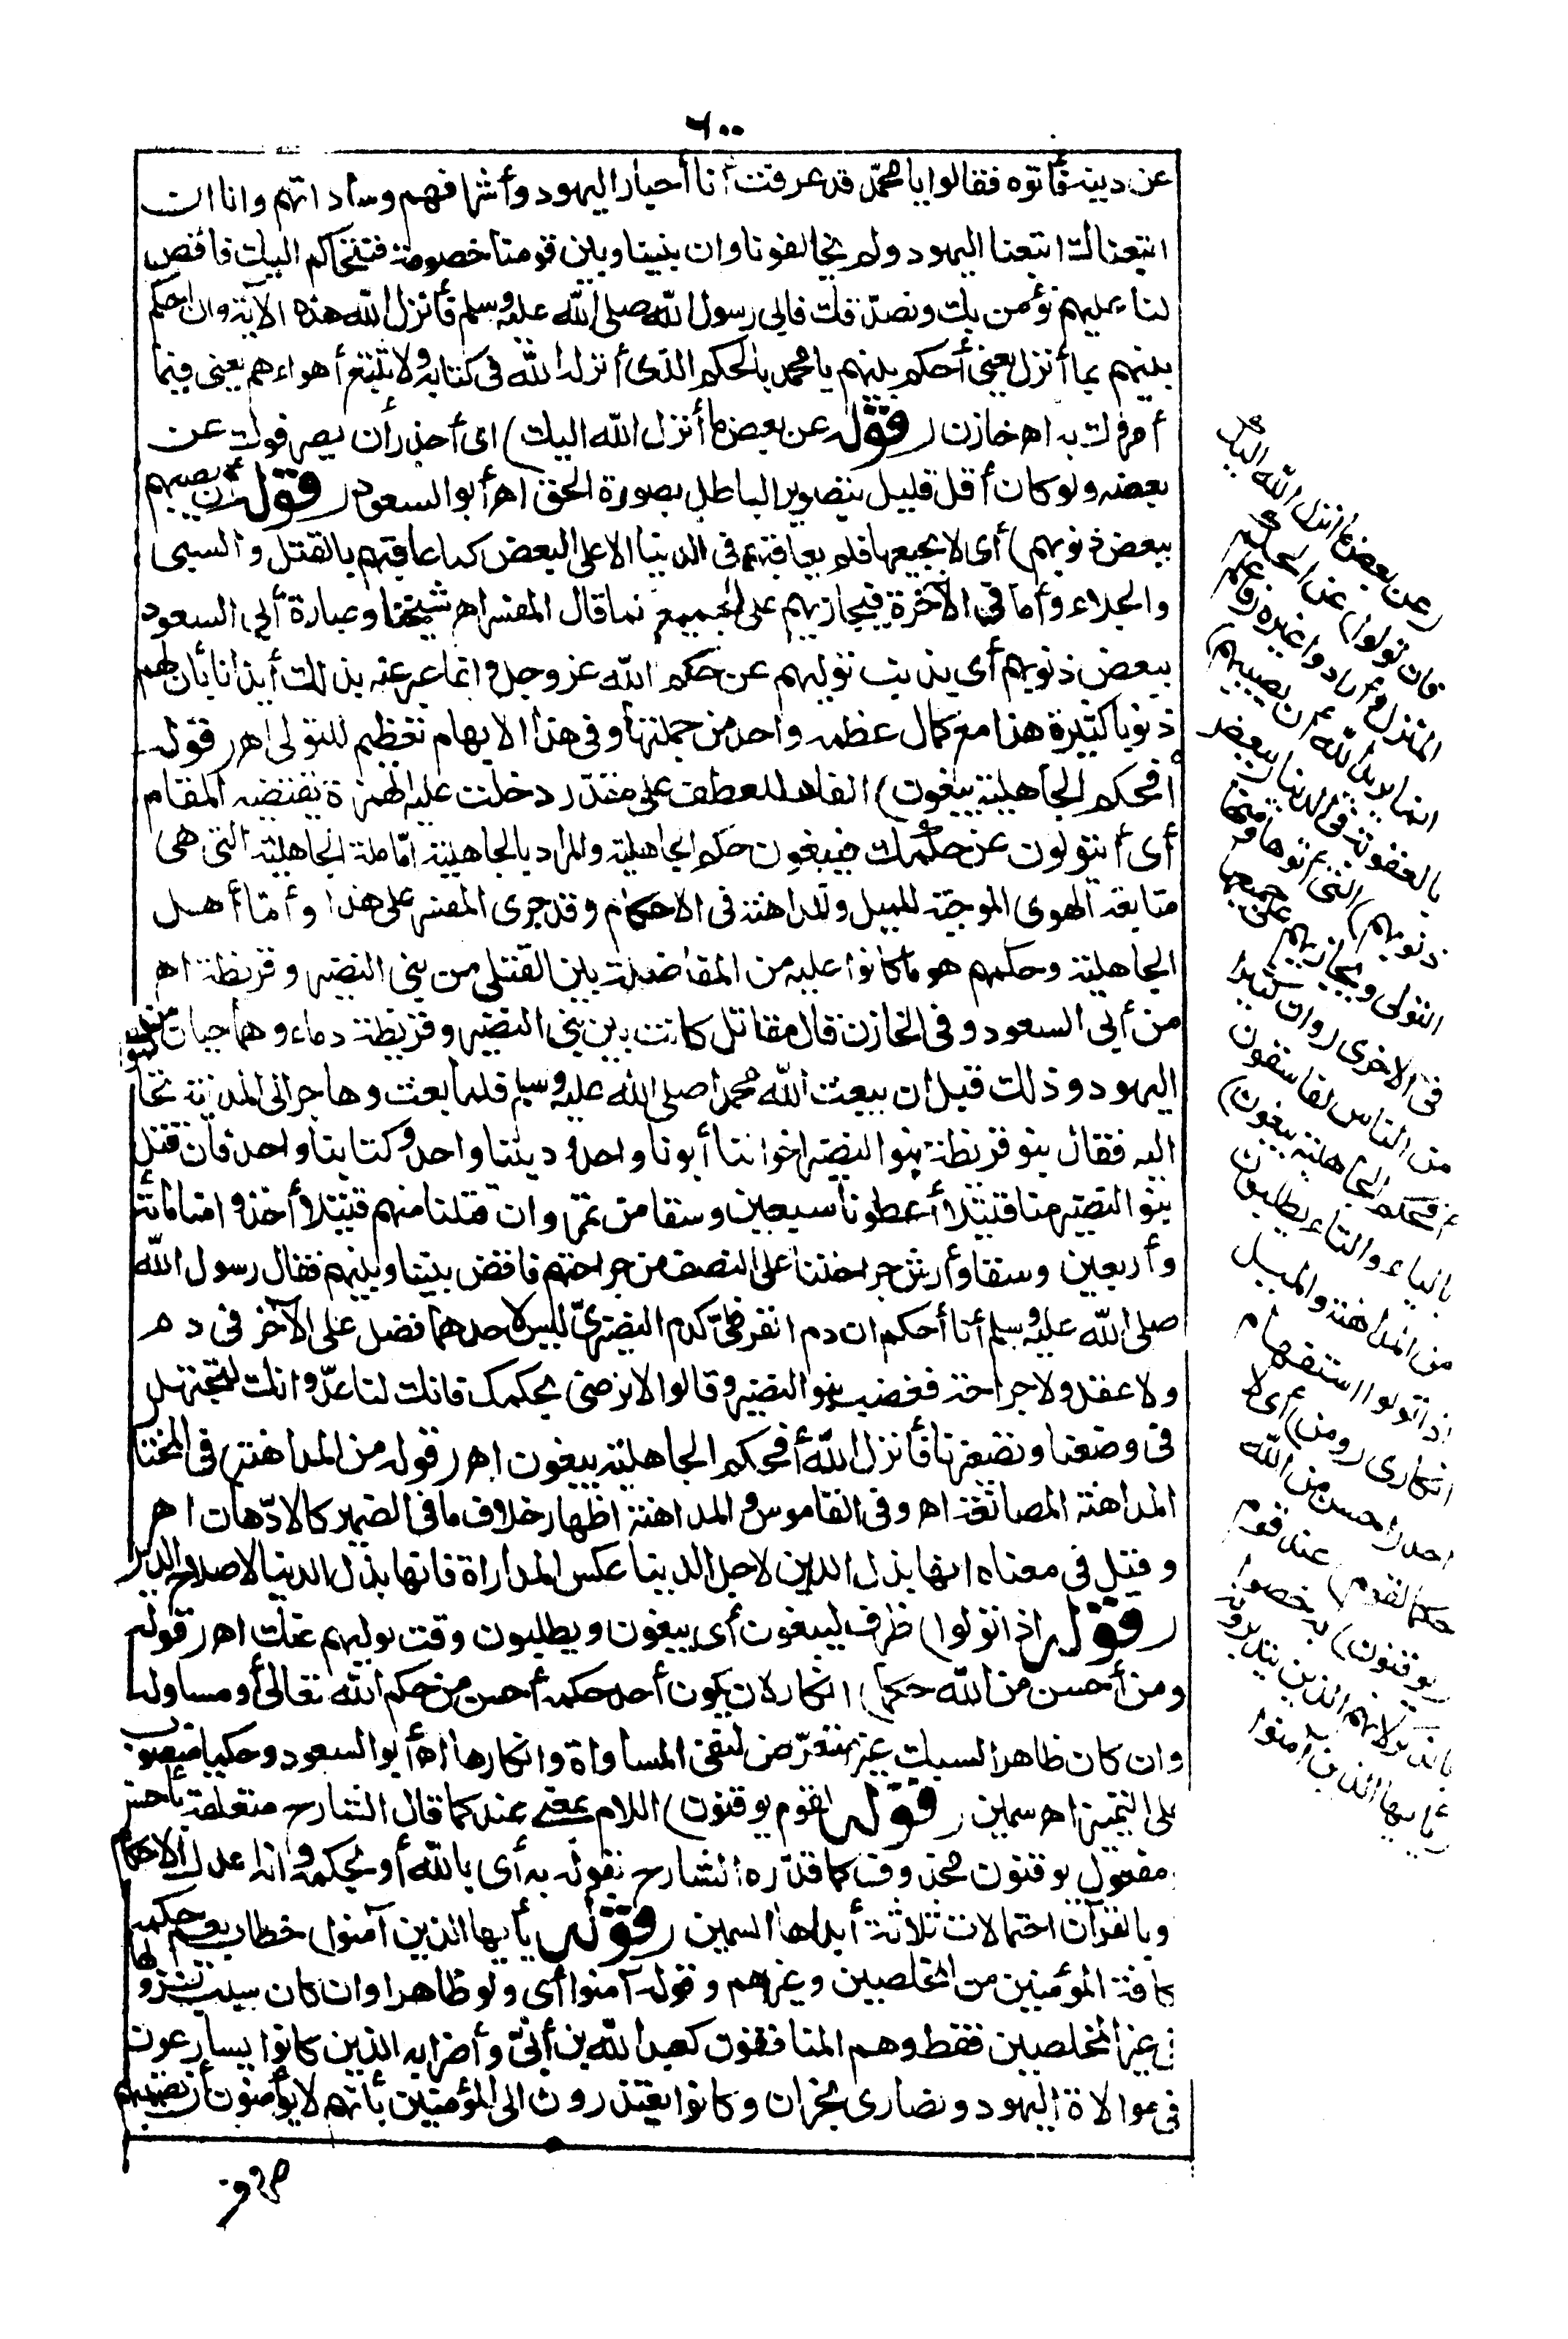 ٦٠٠
عن دينه فأتوه فقالوا يا محمد قد عرفت أنا أحبار اليهود وأشرافهم وساداتهم وانا ان
اتبعناك اتبعنا اليهود ولم يخالفونا وان بيننا وبين قومنا خصومة فنتحاكم اليك فاقض
لنا عليهم نؤمن بك ونصدّقك فابى رسول الله صلى الله عليه وسلم فأنزل الله هذه الآية وان احكم
بينهم بما أنزل يعنى أحكم بينهم يا محمد بالحكم الذى أنزله الله فى كتابه ولا تتبع أهواءهم يعنى فيما
أمروك به اهـ خازن (قوله عن بعض ما أنزل الله اليك) اى أحذر أن يصرفوك عن
بعضه ولو كان أقل قليل بتصوير الباطل بصورة الحق اهـ أبو السعود (قوله أن يصيبهم
ببعض ذنوبهم) أى لا بجميعها فلم يعاقبهم فى الدنيا الا على البعض كما عاقبهم بالقتل والسبى
والجلاء وأما فى الآخرة فيجازيهم على الجميع كما قال المفسر اهـ شيخنا وعبارة أبى السعود
ببعض ذنوبهم أى بذنب توليهم عن حكم الله عز وجل وانما عبر عنه بذلك أيذانا بأن لهم
ذنوبا كثيرة هذا مع كمال عظمه واحد من جملتها وفى هذا الابهام تعظيم للتولى اهـ (قوله
أفحكم الجاهلية يبغون) الفاء للعطف على مقدّر دخلت عليه الهمزة يقتضيه المقام
أى أيتولون عن حكمك فيبغون حكم الجاهلية والمراد بالجاهلية امّا ملة الجاهلية التى هى
متابعة الهوى الموجبة للميل والمداهنة فى الاحكام وقد جرى المفسر على هذا وأمّا أهل
الجاهلية وحكمهم هو ما كانوا عليه من المفاضلة بين القتلى من بنى النضير وقريظة اهـ
من أبى السعود وفى الخازن قال مقاتل كانت بين بنى النضير وقريظة دماء وهما حيان من
اليهود وذلك قبل ان يبعث الله محمدا صلى الله عليه وسلم فلما بعث وهاجر الى المدينة تحاكموا
اليه فقال بنو قريظة بنو النضير اخواننا أبونا واحد وديننا واحد وكتابنا واحد فان قتل
بنو النضير منا قتيلا أعطونا سبعين وسقا من تمر وان قتلنا منهم قتيلا أخذوا منا مائة
وأربعين وسقا وأرش جراحتنا على النصف من جراحتهم فاقض بيننا وبينهم فقال رسول الله
صلى الله عليه وسلم أنا أحكم ان دم القرظىّ كدم النضيرىّ ليس لاحدهما فضل على الآخر فى دم
ولا عقل ولا جراحة فغضب بنو النضير وقالوا لا نرضى بحكمك فانك لنا عدّو وانك لتجتهد
فى وضعنا وتصغيرنا فأنزل الله أفحكم الجاهلية يبغون اهـ (قوله من المداهنة) فى المختار
المداهنة المصانعة اهـ وفى القاموس والمداهنة اظهار خلاف ما فى الضمير كالادّهان اهـ
وقيل فى معناه انها بذل الدين لاجل الدنيا عكس المداراة فانها بذل الدنيا لاصلاح الدين
(قوله اذا تولوا) ظرف ليبغون أى يبغون ويطلبون وقت توليهم عنك اهـ (قوله
ومن أحسن من الله حكما) انكار لان يكون أحد حكمه أحسن من حكم الله تعالى أو مساو له
وان كان ظاهر السبك غير متعرّض لنفى المساواة وانكارها اهـ أبو السعود وحكما منصوب
على التمييز اهـ سمين (قوله لقوم يوقنون) اللام بمعنى عند كما قال الشارح متعلقة بأحسن
ومفعول يوقنون محذوف كما قدّره الشارح بقوله به أى بالله أو بحكمه وانه اعدل الاحكام
وبالقرآن احتمالات ثلاثة أبداها السمين (قوله يأيها الذين آمنوا) خطاب يعم حكمه
كافة المؤمنين من المخلصين وغيرهم وقوله آمنوا أى ولو ظاهرا وان كان سبب نزولها
فى غير المخلصين فقط وهم المنافقون كعبد الله بن أبىّ وأضرابه الذين كانوا يسارعون
فى موالاة اليهود ونصارى نجران وكانوا يعتذرون الى المؤمنين بأنهم لا يؤمنون أن تصيبهم
(عن بعض ما أنزل الله اليك
فان تولوا) عن الحكم
المنزل وأرادوا غيره (فاعلم
انما يريد الله أن يصيبهم)
بالعقوبة فى الدنيا (ببعض
ذنوبهم) التى أتوها ومنها
التولى ويجازيهم على جميعها
فى الاخرى (وان كثيرا
من الناس لفاسقون
أفحكم الجاهلية يبغون)
بالياء والتاء يطلبون
من المداهنة والميل
اذا تولوا استفهام
انكارى (ومن) أى لا
احد (احسن من الله
حكما لقوم) عند قوم
(يوقنون) به خصوا
بالذكر لانهم الذين يتدبرونه
(يأيها الذين آمنوا